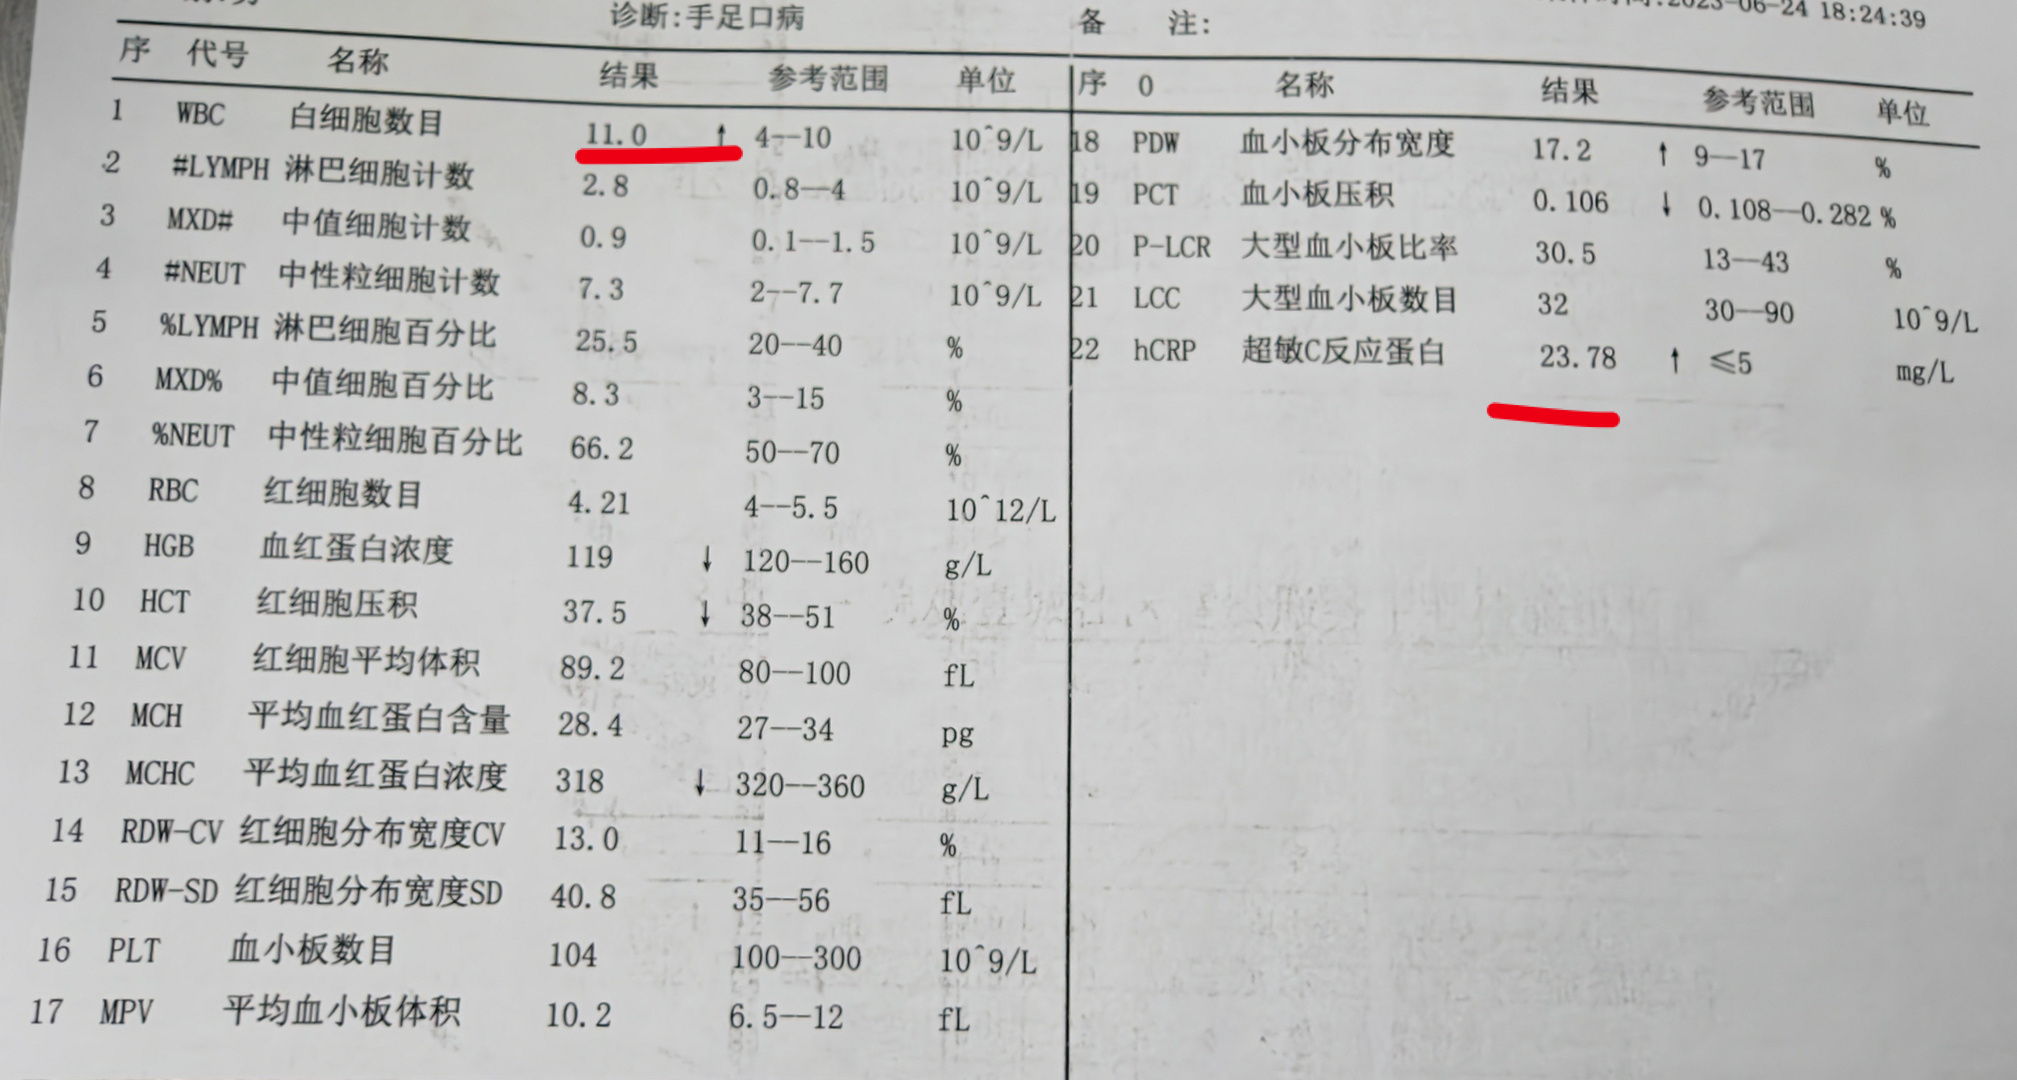 诊断:手足口病 备 注: 2023-06-24 18:24:39
序 代号 名称 结果 参考范围 单位 序 0 名称 结果 参考范围 单位
1 WBC 白细胞数目 11.0 ↑ 4--10 10^9/L
2 #LYMPH 淋巴细胞计数 2.8 0.8--4 10^9/L
3 MXD# 中值细胞计数 0.9 0.1--1.5 10^9/L
4 #NEUT 中性粒细胞计数 7.3 2--7.7 10^9/L
5 %LYMPH 淋巴细胞百分比 25.5 20--40 %
6 MXD% 中值细胞百分比 8.3 3--15 %
7 %NEUT 中性粒细胞百分比 66.2 50--70 %
8 RBC 红细胞数目 4.21 4--5.5 10^12/L
9 HGB 血红蛋白浓度 119 ↓ 120--160 g/L
10 HCT 红细胞压积 37.5 ↓ 38--51 %
11 MCV 红细胞平均体积 89.2 80--100 fL
12 MCH 平均血红蛋白含量 28.4 27--34 pg
13 MCHC 平均血红蛋白浓度 318 ↓ 320--360 g/L
14 RDW-CV 红细胞分布宽度CV 13.0 11--16 %
15 RDW-SD 红细胞分布宽度SD 40.8 35--56 fL
16 PLT 血小板数目 104 100--300 10^9/L
17 MPV 平均血小板体积 10.2 6.5--12 fL
18 PDW 血小板分布宽度 17.2 ↑ 9--17 %
19 PCT 血小板压积 0.106 ↓ 0.108--0.282 %
20 P-LCR 大型血小板比率 30.5 13--43 %
21 LCC 大型血小板数目 32 30--90 10^9/L
22 hCRP 超敏C反应蛋白 23.78 ↑ ≤5 mg/L